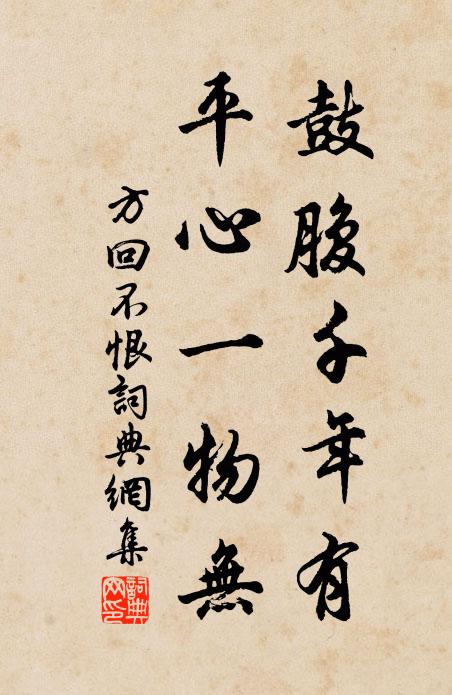 鼓腹千年有
平心一物無
方回不恨詞典網集
詞典網印